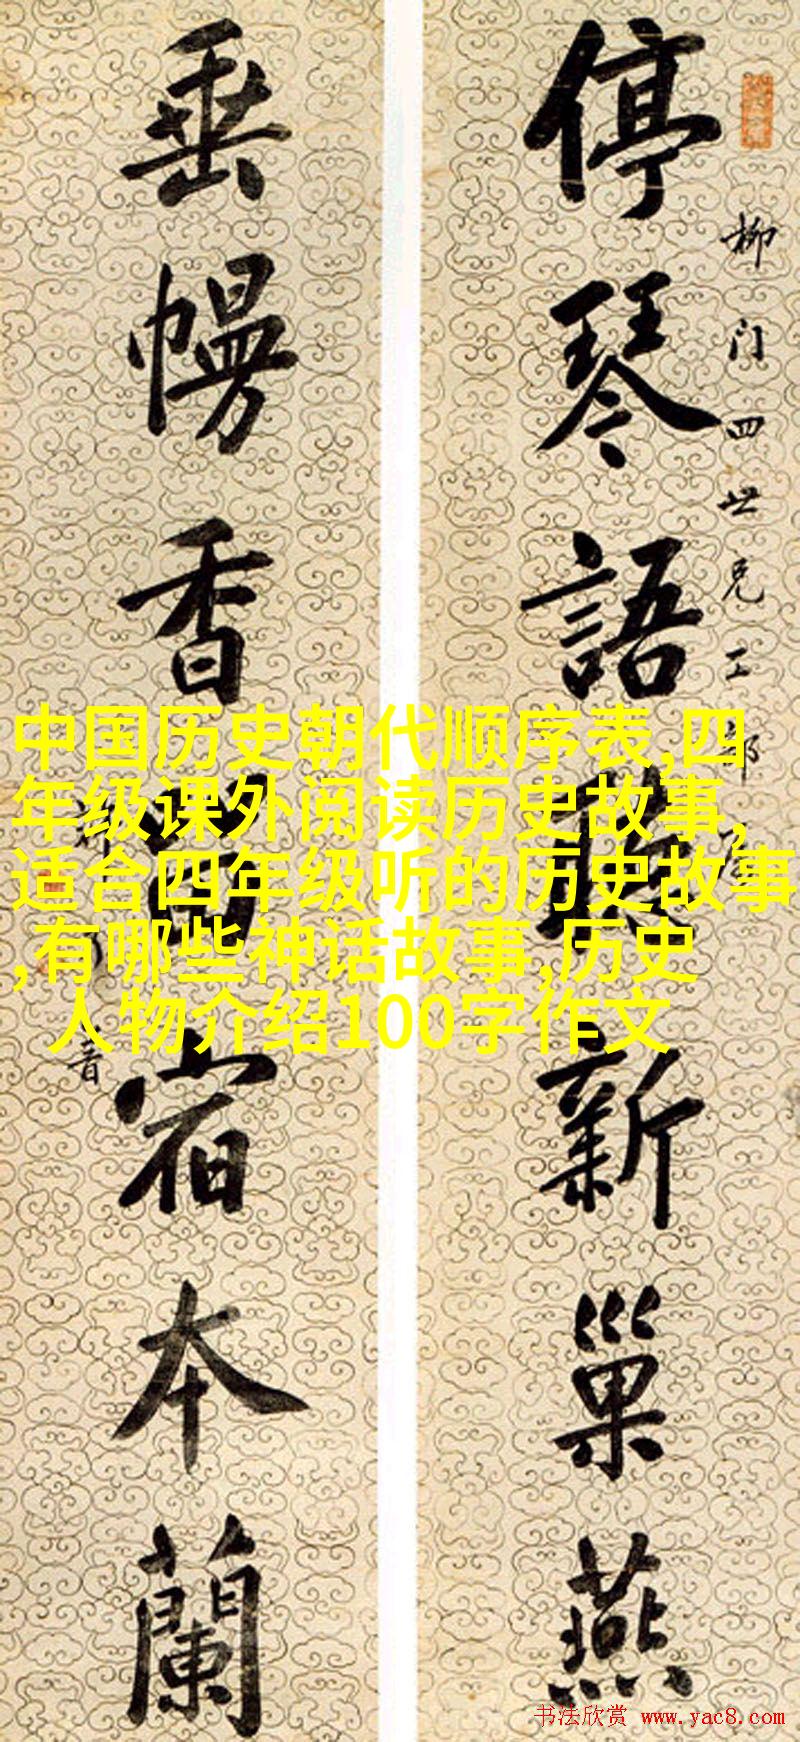 柳门四世兄工部
停琴語新巢燕
垂幔香宿本蘭
中国历史朝代顺序表,四
年级课外阅读历史故事,
适合四年级听的历史故事
,有哪些神话故事,历史
人物介绍100字作文
书法欣赏 www.yac8.com